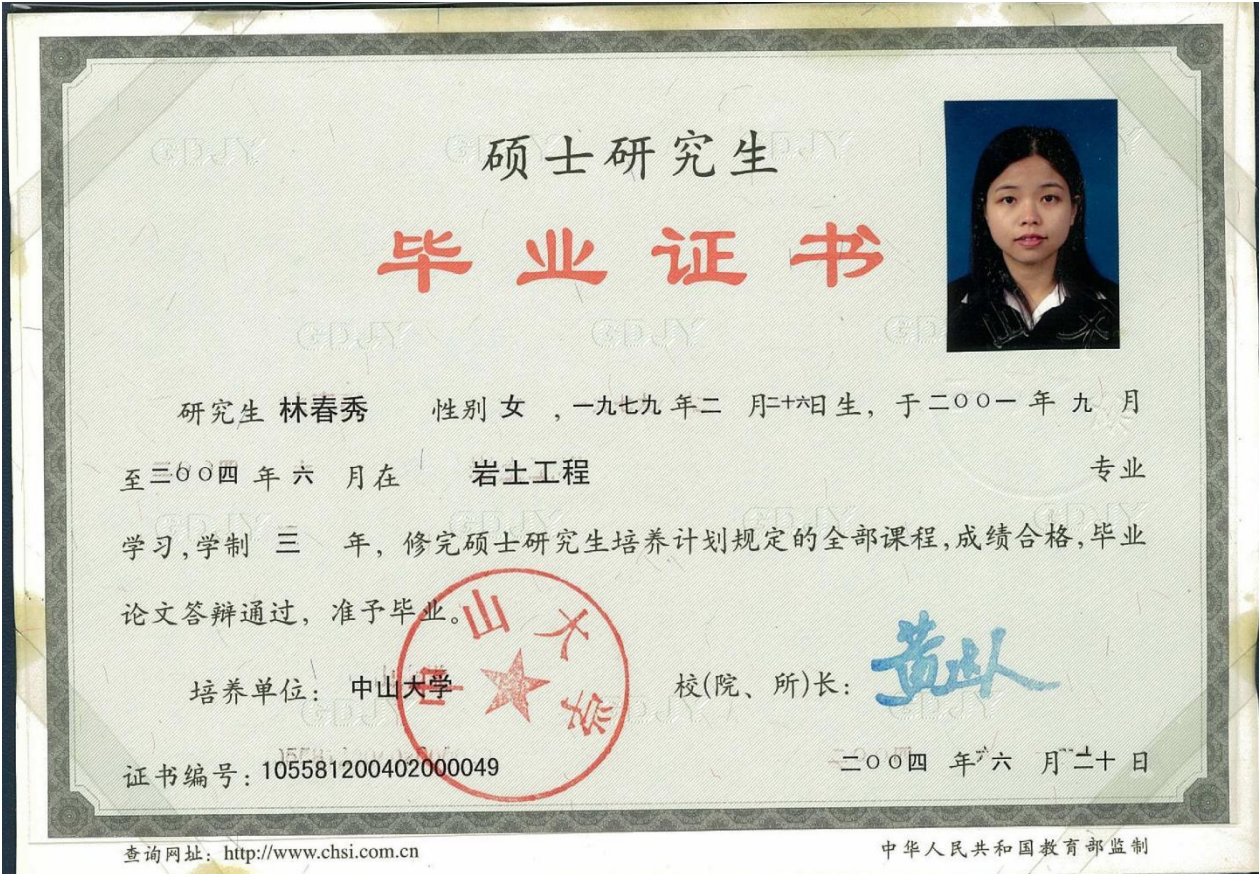 硕士研究生
毕业证书
研究生 林春秀 性别 女 ，一九七九 年二 月二十六日生，于二〇〇一 年 九 月
至二〇〇四 年 六 月在 岩土工程 专业
学习，学制 三 年，修完硕士研究生培养计划规定的全部课程，成绩合格，毕业
论文答辩通过，准予毕业。
培养单位：中山大学 校(院、所)长：
中山大学
证书编号：105581200402000049 二〇〇四 年 六 月 二十 日
查询网址：http://www.chsi.com.cn 中华人民共和国教育部监制
GDJY